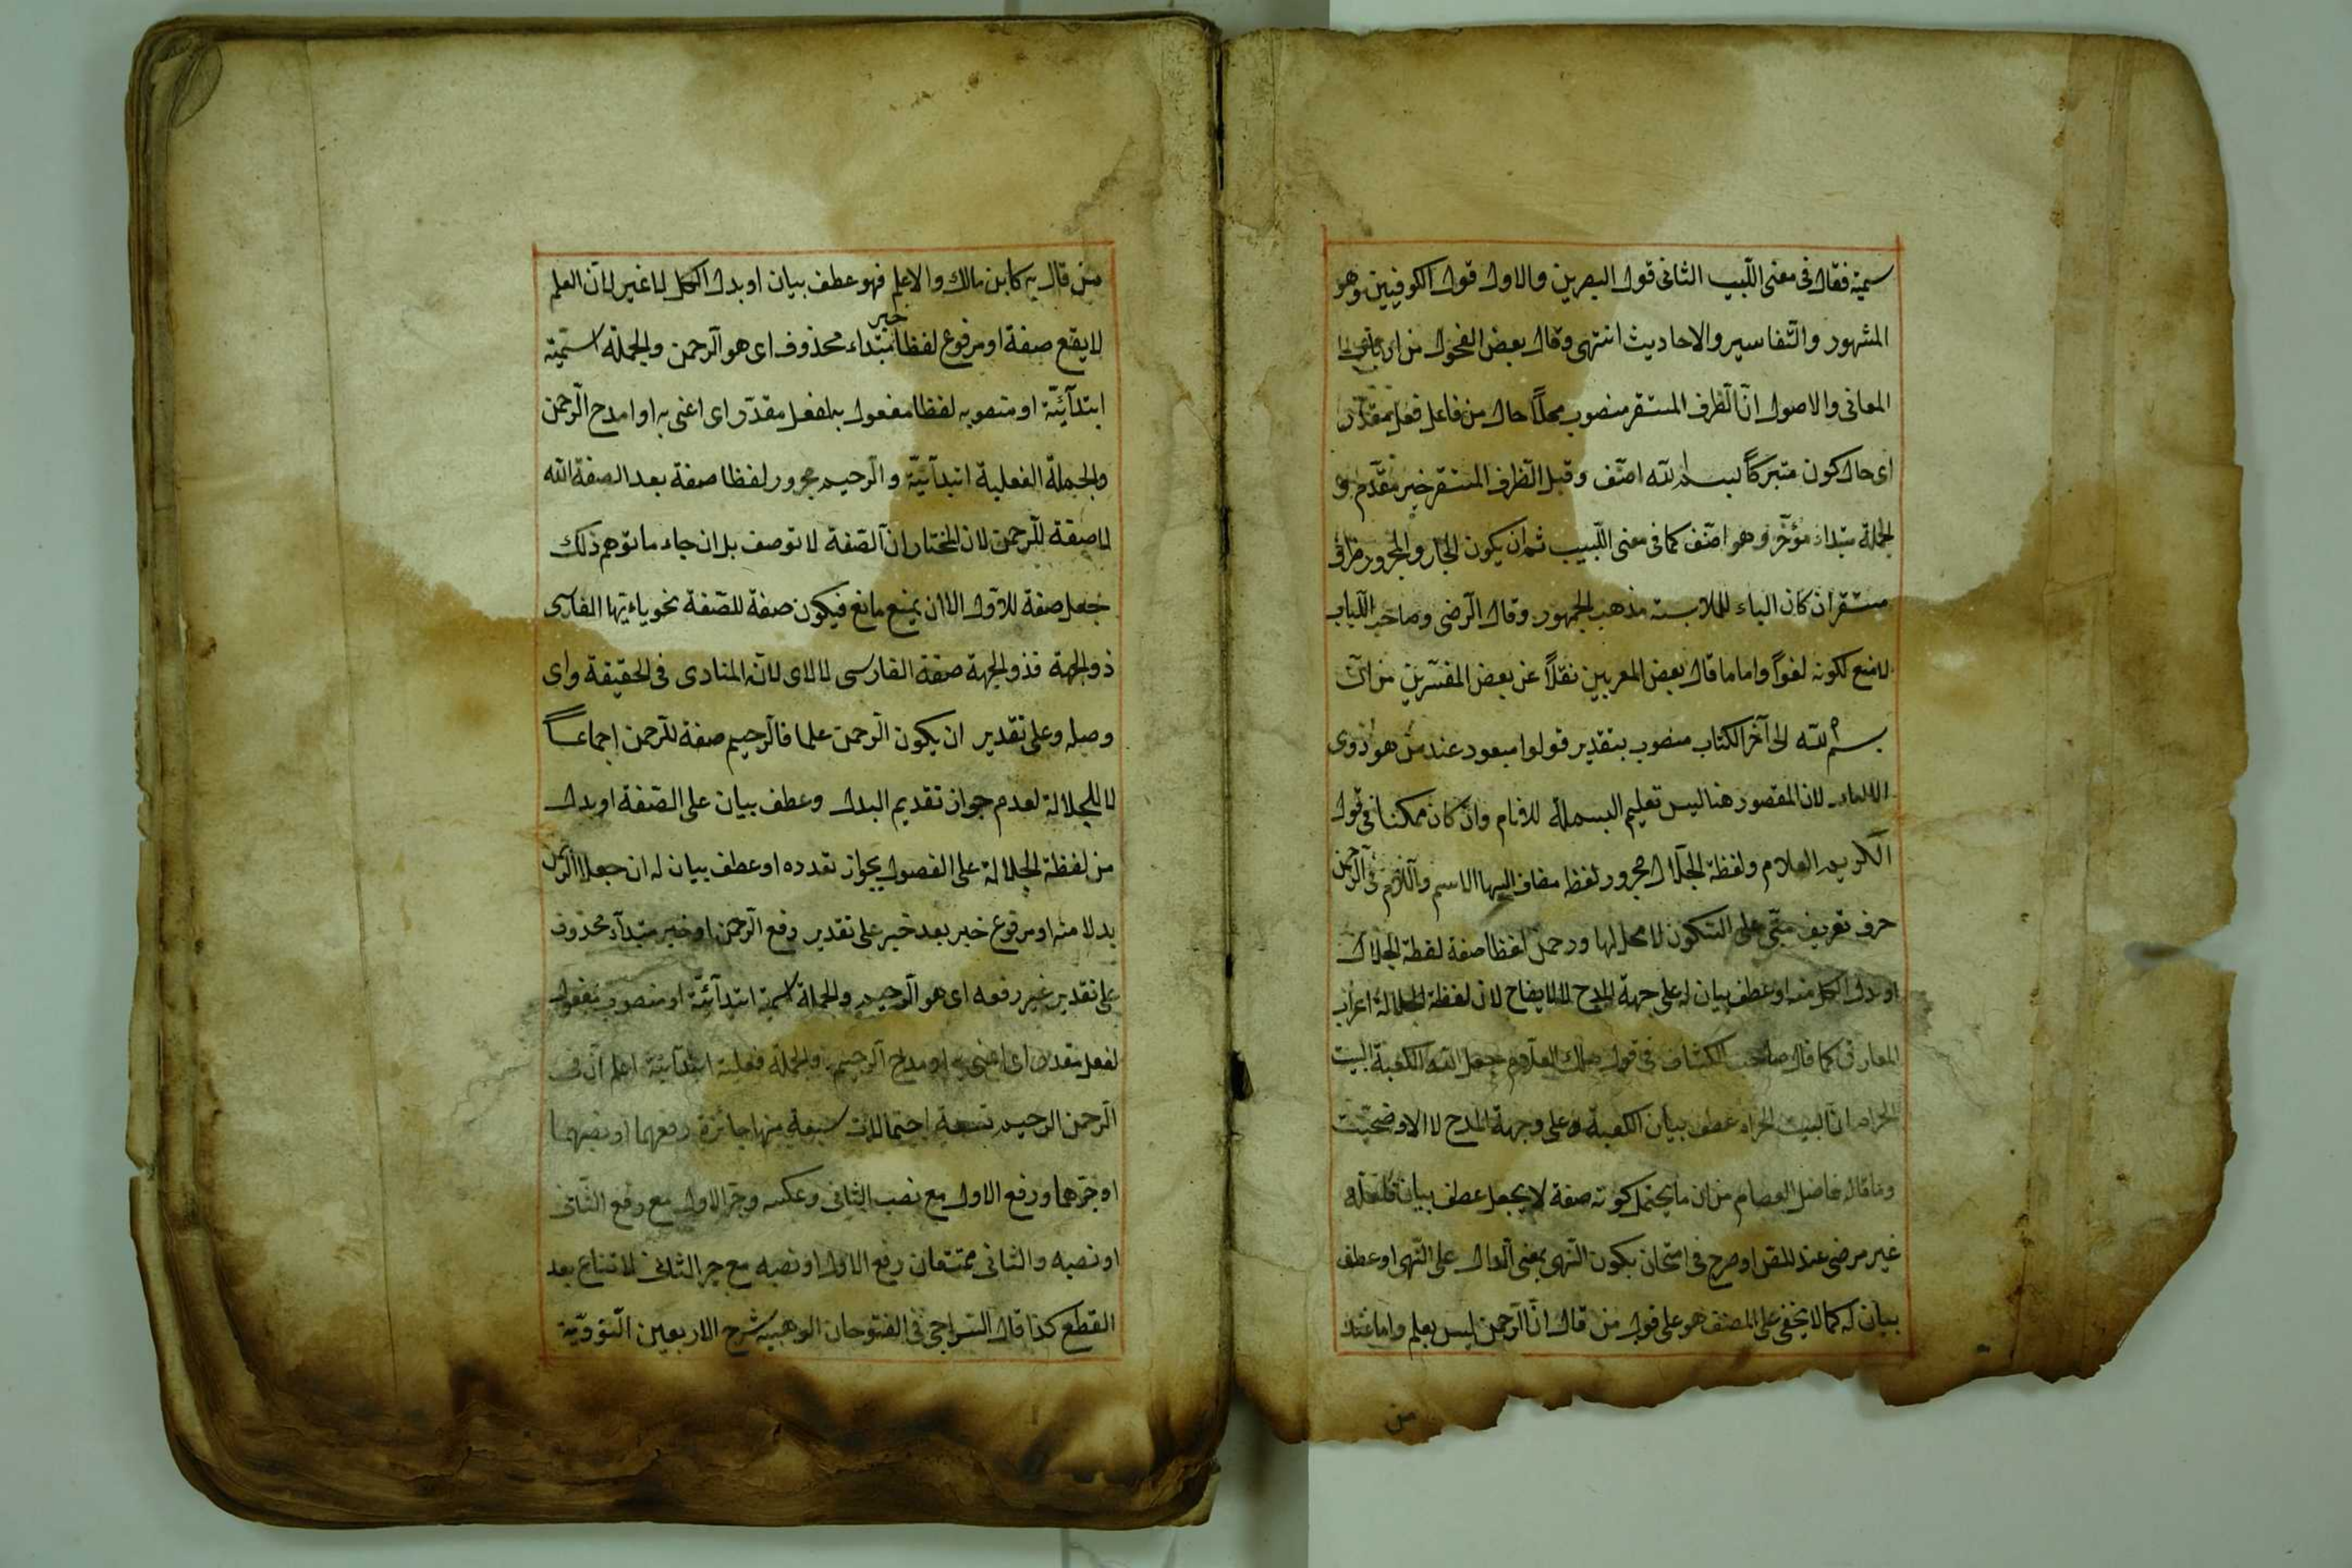 سمية فقال فى مغنى اللبيب الثانى قول البصريين والاول قول الكوفيين وهو
المشهور والتفاسير والاحاديث انتهى وقال بعض الفحول من
المعانى والاصول ان الظرف المستقر منصوب محلا حال من فاعل فعل مقدر
اى حال كون متبركا بسم الله اصنف وقيل الظرف المستقر خبر مقدم و
لجملة مبتداء مؤخر وهو اصنف كما فى مغنى اللبيب ثم ان يكون الجار والمجرور ظرفا
مستقرا ان كان الباء للملابسة مذهب الجمهور وقال الرضى وصاحب اللباب
لامنع لكونه لغوا واما ما قال بعض المعربين نقلا عن بعض المفسرين من ان
بسم الله الى آخر الكتاب منصوب بتقدير قولوا مبعود عند من هو ذوى
لان المقصور هنا ليس تعليم البسملة للانام وان كان ممكنا فى قول
الكريم العلام ولفظة الجلال مجرور لفظا مضاف اليها الاسم واللام فى الرحمن
حرف تعريف مبنى على السكون لا محل لها ورحمن لفظا صفة لفظة الجلال
او بدل الكل منه او عطف بيان له على جهة المدح لا الايضاح لان لفظة الجلالة اعرف
المعارف كما قال صاحب الكشاف فى قول ملك العلام جعل الله الكعبة البيت
الحرام ان البيت الحرام عطف بيان الكعبة على وجهة المدح لا الاوضحيت
وما قاله فاضل العصام من ان ما يحتمل كونه صفة لا يجعل عطف بيان
غير مرضى عند المقل وصرح فى امتحان بكون النهى بمعنى الدال على النهى او عطف
بيان له كما لا يخفى على المصنف هو على قول من قال ان الرحمن ليس بعلم واما عند
من
من قال به كابن مالك والاعلم فهو عطف بيان او بدل الكل لا غير لان العلم
لا يقع صفة او مرفوع لفظا خبر مبتداء محذوف اى هو الرحمن والجملة اسمية
ابتدآئية او منصوبه لفظا مفعول به لفعل مقدر اى اعنى به او امدح الرحمن
والجملة الفعلية ابتدآئية والرحيم مجرور لفظا صفة بعد الصفة الله
لا صفة للرحمن لان المختار ان الصفة لا توصف بل ان جاء ما توهم ذلك
جعل صفة للاول الا ان يمنع مانع فيكون صفة للصفة نحو يا ايها الفارسى
ذو الجهة فذو الجهة صفة الفارسى لا لاى لانه المنادى فى الحقيقة واى
وصله وعلى تقدير ان يكون الرحمن علما فالرحيم صفة للرحمن اجماعا
لا للجلالة لعدم جواز تقديم البدل وعطف بيان على الصفة او بدل
من لفظة الجلالة على الفصول بجواز تعدده او عطف بيان له ان جعل الرحمن
بدلا منه او مرفوع خبر بعد خبر على تقدير رفع الرحمن او خبر مبتدآء محذوف
على تقدير غير رفعه اى هو الرحيم والجملة اسمية ابتدآئية او منصوب مفعول
لفعل مقدر اى اعنى به او مدح الرحيم والجملة فعلية ابتدآئية اعلم ان فى
الرحمن الرحيم تسعة احتمالات سبعة منها جائزة رفعهما او نصبهما
او جرهما ورفع الاول مع نصب الثانى وعكسه وجر الاول مع رفع الثانى
او نصبه والثانى ممتنعان رفع الاول او نصبه مع جر الثانى لامتناع بعد
القطع كذا قال السراجى فى الفتوحان الوهبيه شرح الاربعين النووية